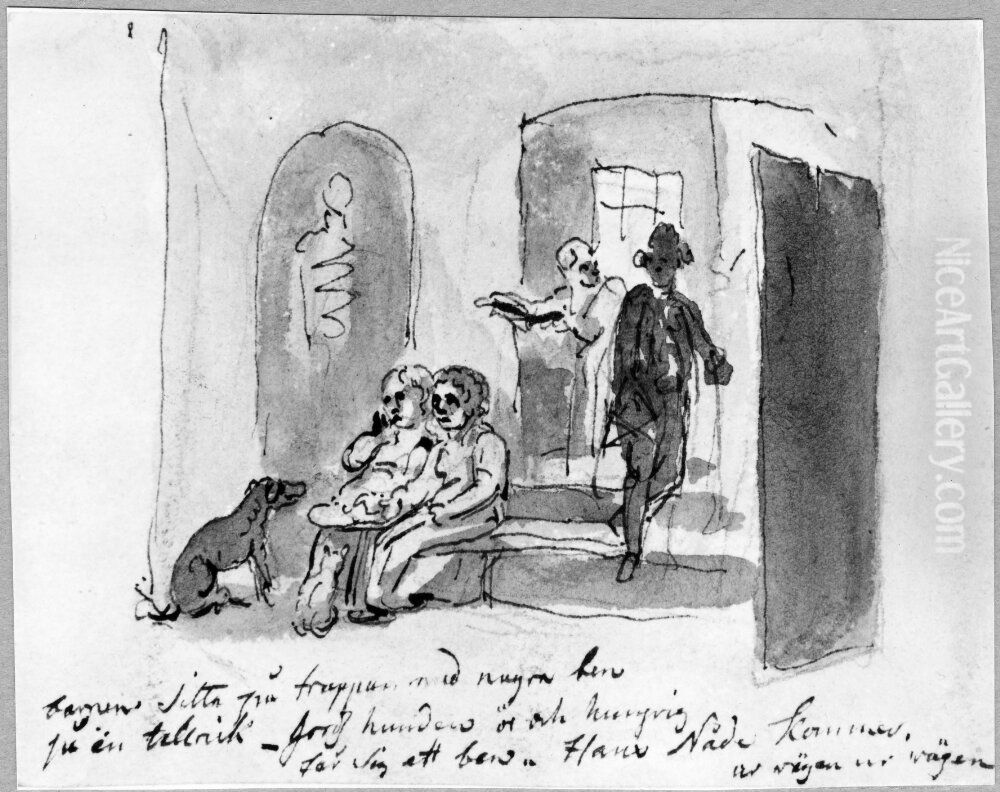 barnen Sitta på trappan med några ben
på en tallrik – hunden är och hungrig
får Sig ett ben. Hans Nåde Kommer,
ur vägen ur vägen
NiceArtGallery.com